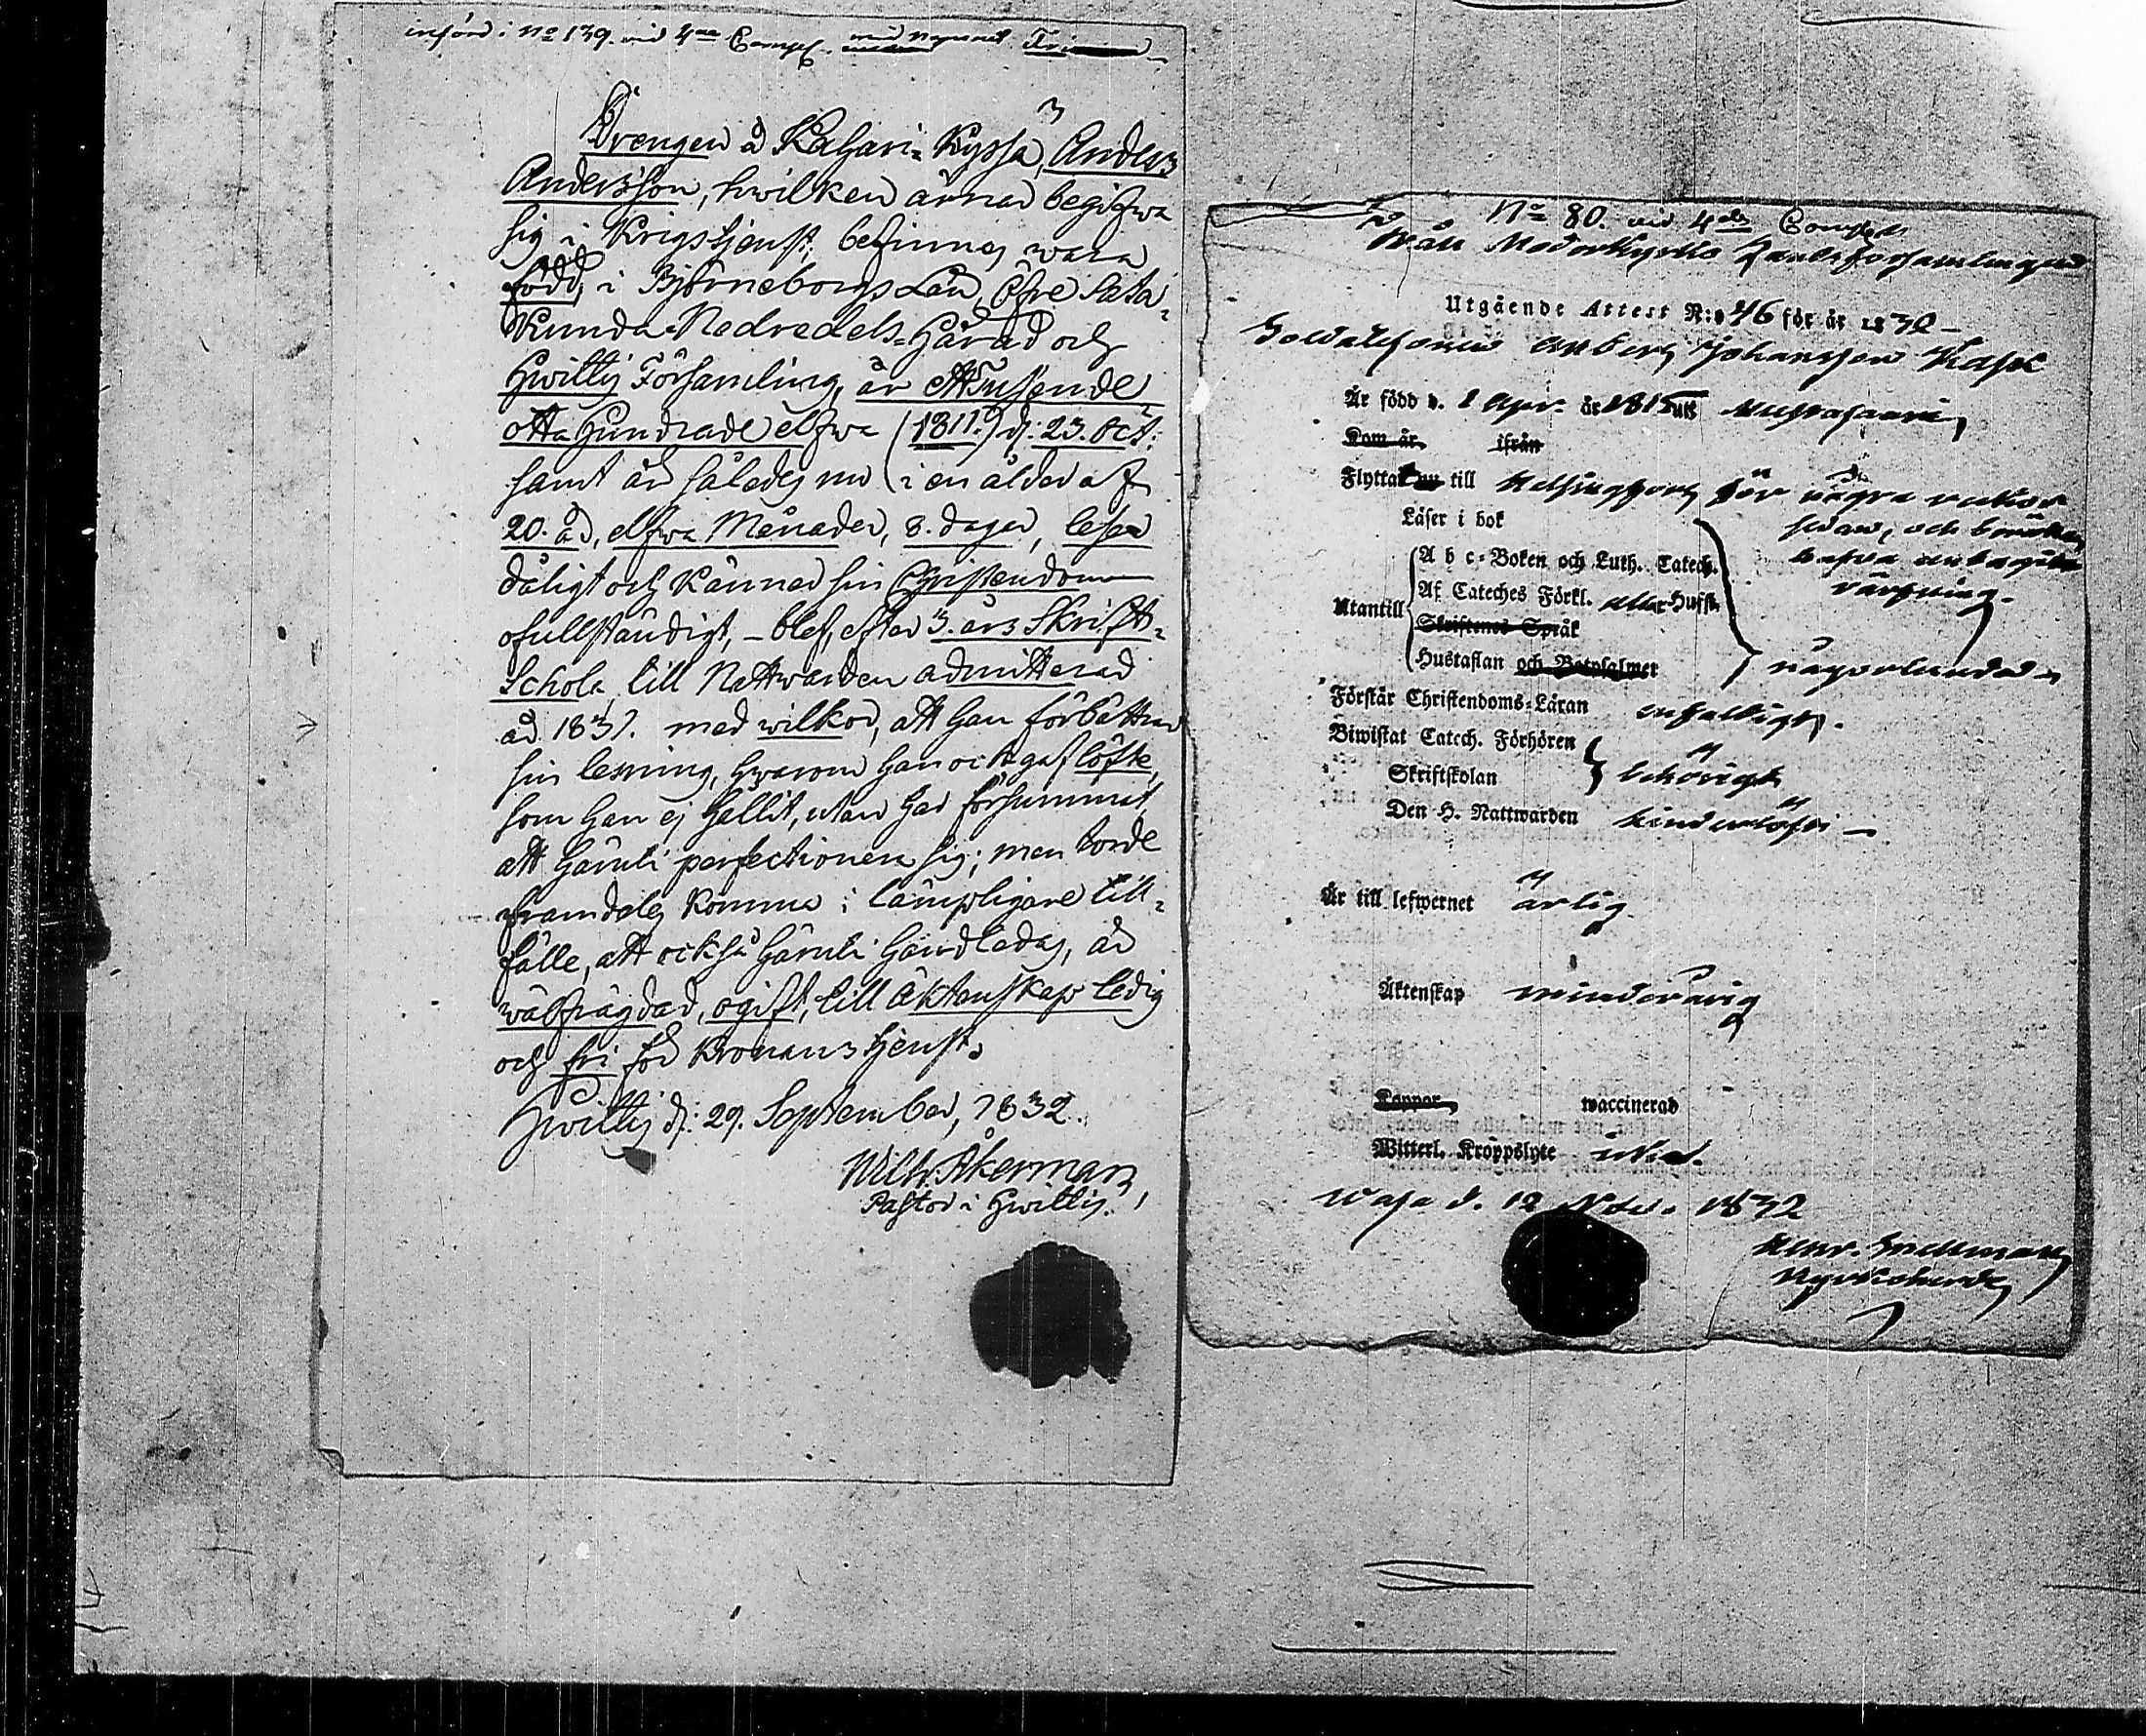 införd i No 139. vid 4de Comp. med namnet
Drengen å Kahari-Kyssä, Anders
Andersson, hwilken ärnar begifwa
sig i Krigstjenst, befinnes wara
född i Björneborgs Län, Öfre Sata-
kunda Nedredels-Härad och
Hwittis Församling, år Ettusende
otta Hundrade elfwa (1811.) d: 23. Oct:
samt är således nu i en ålder af
20. år, elfwa Månader, 8. dagar, läser
dåligt och känner sin Christendom
ofullständigt, – blef, efter 3. års Skrift-
Schola till Nattwarden admitterad
år 1831. med wilkor, att han förbättrar
sin läsning, hwarom han ock gaf löfte,
som han ej hållit, utan har försummat,
att häruti perfectionera sig; men torde
framdeles komma i lämpligare till-
fälle, att också häruti handledas, är
wälfrägdad, ogift, till Äktenskap ledig
och fri för Kronans tjenst.
Hwittis d: 29. September, 1832.
Wilh. Åkerman,
Pastor i Hwittis.
No 80. vid 4de Comp.
Från Moderkyrko Landsförsamlingen
Utgående Attest N:o 46 för år 1832
Soldatsonen Johansson
Är född d. 1 Apr. år 1815 uti
Kom år ifrån
Flyttat nu till Helsingfors för några veckor
sedan, och
Läser i bok
värfning.
A b c-Boken och Luth. Catech.
Utantill Af Cateches Förkl.
Skriftenes Språk
Hustaflan och Botpsalmer någorlunda
Förstår Christendoms-Läran enfaldigt.
Biwistat Catech. Förhören
Skriftskolan behörigt
Den H. Nattwarden
Är till lefwernet ärlig.
Äktenskap minderårig
Koppor waccinerad
Witterl. Kroppslyte utan.
Wasa d. 12 Nov. 1832
Kyrkoherde